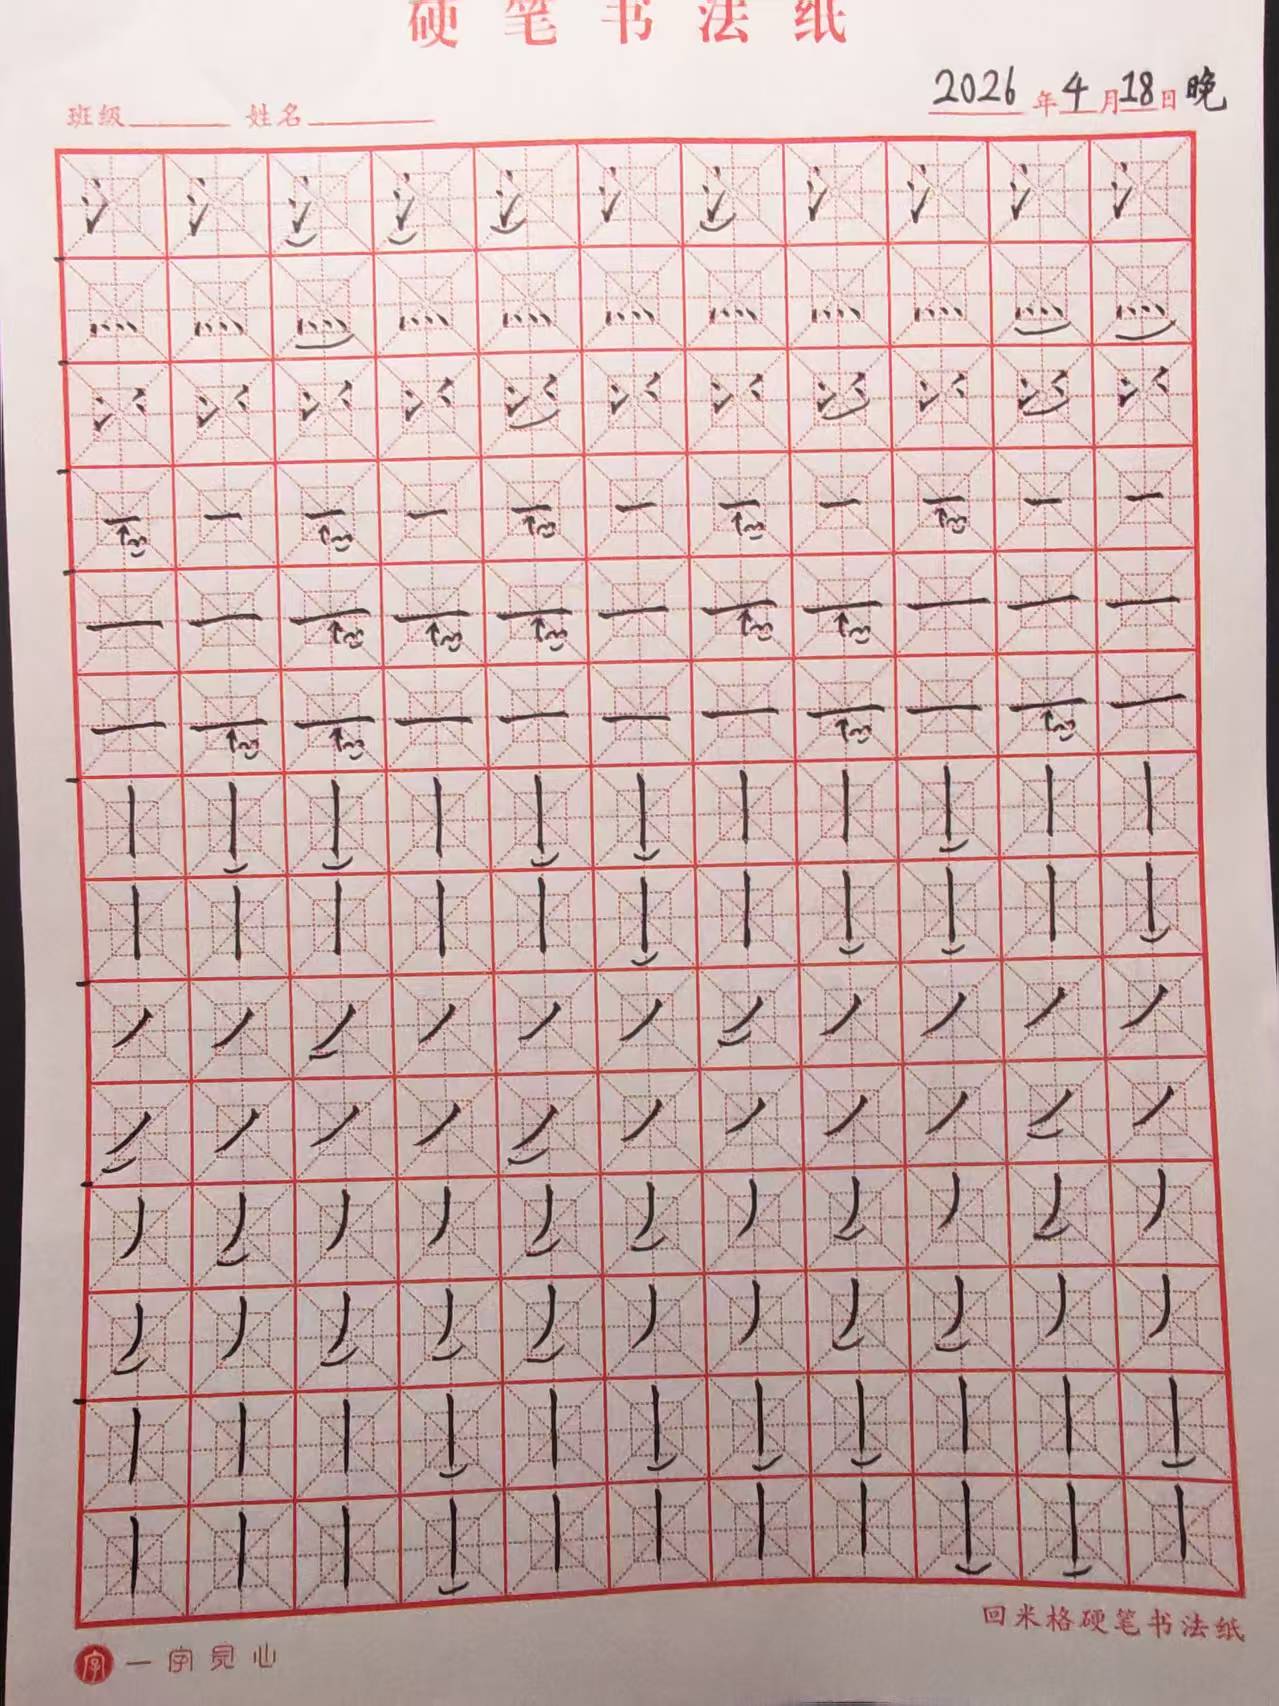 硬笔书法纸
班级 姓名 2026年4月18日晚
氵 氵 氵 氵 氵 氵 氵 氵 氵 氵 氵
灬 灬 灬 灬 灬 灬 灬 灬 灬 灬 灬
一 一 一 一 一 一 一 一 一 一 一
一 一 一 一 一 一 一 一 一 一 一
一 一 一 一 一 一 一 一 一 一 一
丨 丨 丨 丨 丨 丨 丨 丨 丨 丨 丨
丨 丨 丨 丨 丨 丨 丨 丨 丨 丨 丨
丿 丿 丿 丿 丿 丿 丿 丿 丿 丿 丿
丿 丿 丿 丿 丿 丿 丿 丿 丿 丿 丿
丿 丿 丿 丿 丿 丿 丿 丿 丿 丿 丿
丿 丿 丿 丿 丿 丿 丿 丿 丿 丿 丿
丨 丨 丨 丨 丨 丨 丨 丨 丨 丨 丨
丨 丨 丨 丨 丨 丨 丨 丨 丨 丨 丨
回米格硬笔书法纸
字 一字见心